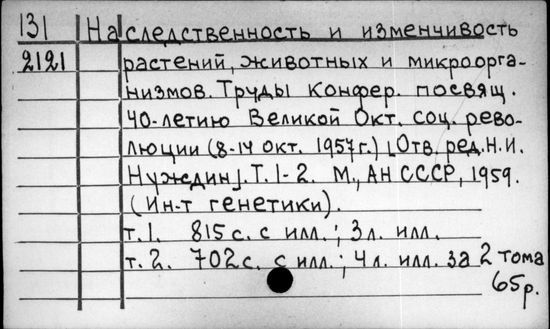 131 Наследственность и изменчивость
2121 растений, животных и микроорга-
низмов. Труды Конфер. посвящ.
40-летию Великой Окт. соц. рево-
люции (8-14 окт. 1957г.) [Отв. ред. Н.И.
Нуждин]. Т. 1-2. М., АН СССР, 1959.
(Ин-т генетики).
т.1. 815 с. с илл.; 3 л. илл.
т.2. 702 с. с илл.; 4 л. илл. за 2 тома
65р.